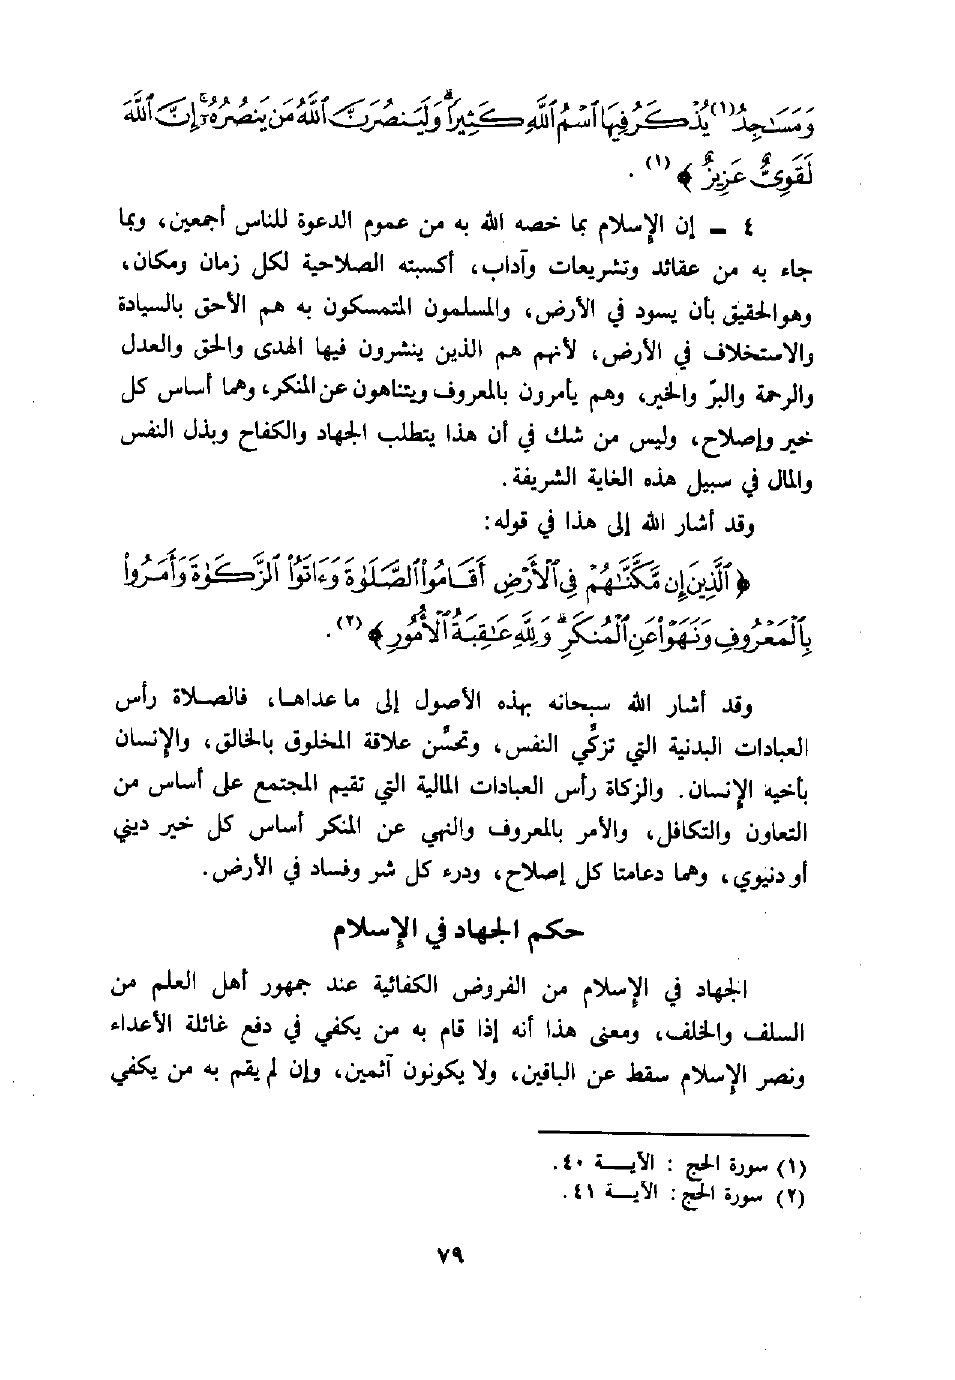 وَمَسَـٰجِدُ(١) يُذْكَرُ فِيهَا ٱسْمُ ٱللَّهِ كَثِيرًا ۗ وَلَيَنصُرَنَّ ٱللَّهُ مَن يَنصُرُهُۥٓ ۚ إِنَّ ٱللَّهَ
لَقَوِىٌّ عَزِيزٌ ﴾(١) .
٤ ــ إن الإسلام بما خصه الله به من عموم الدعوة للناس أجمعين، وبما
جاء به من عقائد وتشريعات وآداب، أكسبته الصلاحية لكل زمان ومكان،
وهو الحقيق بأن يسود في الأرض، والمسلمون المتمسكون به هم الأحق بالسيادة
والاستخلاف في الأرض، لأنهم هم الذين ينشرون فيها الهدى والحق والعدل
والرحمة والبرّ والخير، وهم يأمرون بالمعروف ويتناهون عن المنكر، وهما أساس كل
خير وإصلاح، وليس من شك في أن هذا يتطلب الجهاد والكفاح وبذل النفس
والمال في سبيل هذه الغاية الشريفة.
وقد أشار الله إلى هذا في قوله:
﴿ ٱلَّذِينَ إِن مَّكَّنَّـٰهُمْ فِى ٱلْأَرْضِ أَقَامُوا۟ ٱلصَّلَوٰةَ وَءَاتَوُا۟ ٱلزَّكَوٰةَ وَأَمَرُوا۟
بِٱلْمَعْرُوفِ وَنَهَوْا۟ عَنِ ٱلْمُنكَرِ ۗ وَلِلَّهِ عَـٰقِبَةُ ٱلْأُمُورِ ﴾(٢).
وقد أشار الله سبحانه بهذه الأصول إلى ما عداها، فالصلاة رأس
العبادات البدنية التي تزكّي النفس، وتحسّن علاقة المخلوق بالخالق، والإنسان
بأخيه الإنسان. والزكاة رأس العبادات المالية التي تقيم المجتمع على أساس من
التعاون والتكافل، والأمر بالمعروف والنهي عن المنكر أساس كل خير ديني
أو دنيوي، وهما دعامتا كل إصلاح، ودرء كل شر وفساد في الأرض.
حكم الجهاد في الإسلام
الجهاد في الإسلام من الفروض الكفائية عند جمهور أهل العلم من
السلف والخلف، ومعنى هذا أنه إذا قام به من يكفي في دفع غائلة الأعداء
ونصر الإسلام سقط عن الباقين، ولا يكونون آثمين، وإن لم يقم به من يكفي
(١) سورة الحج : الآيــة ٤٠.
(٢) سورة الحج : الآيــة ٤١.
٧٩